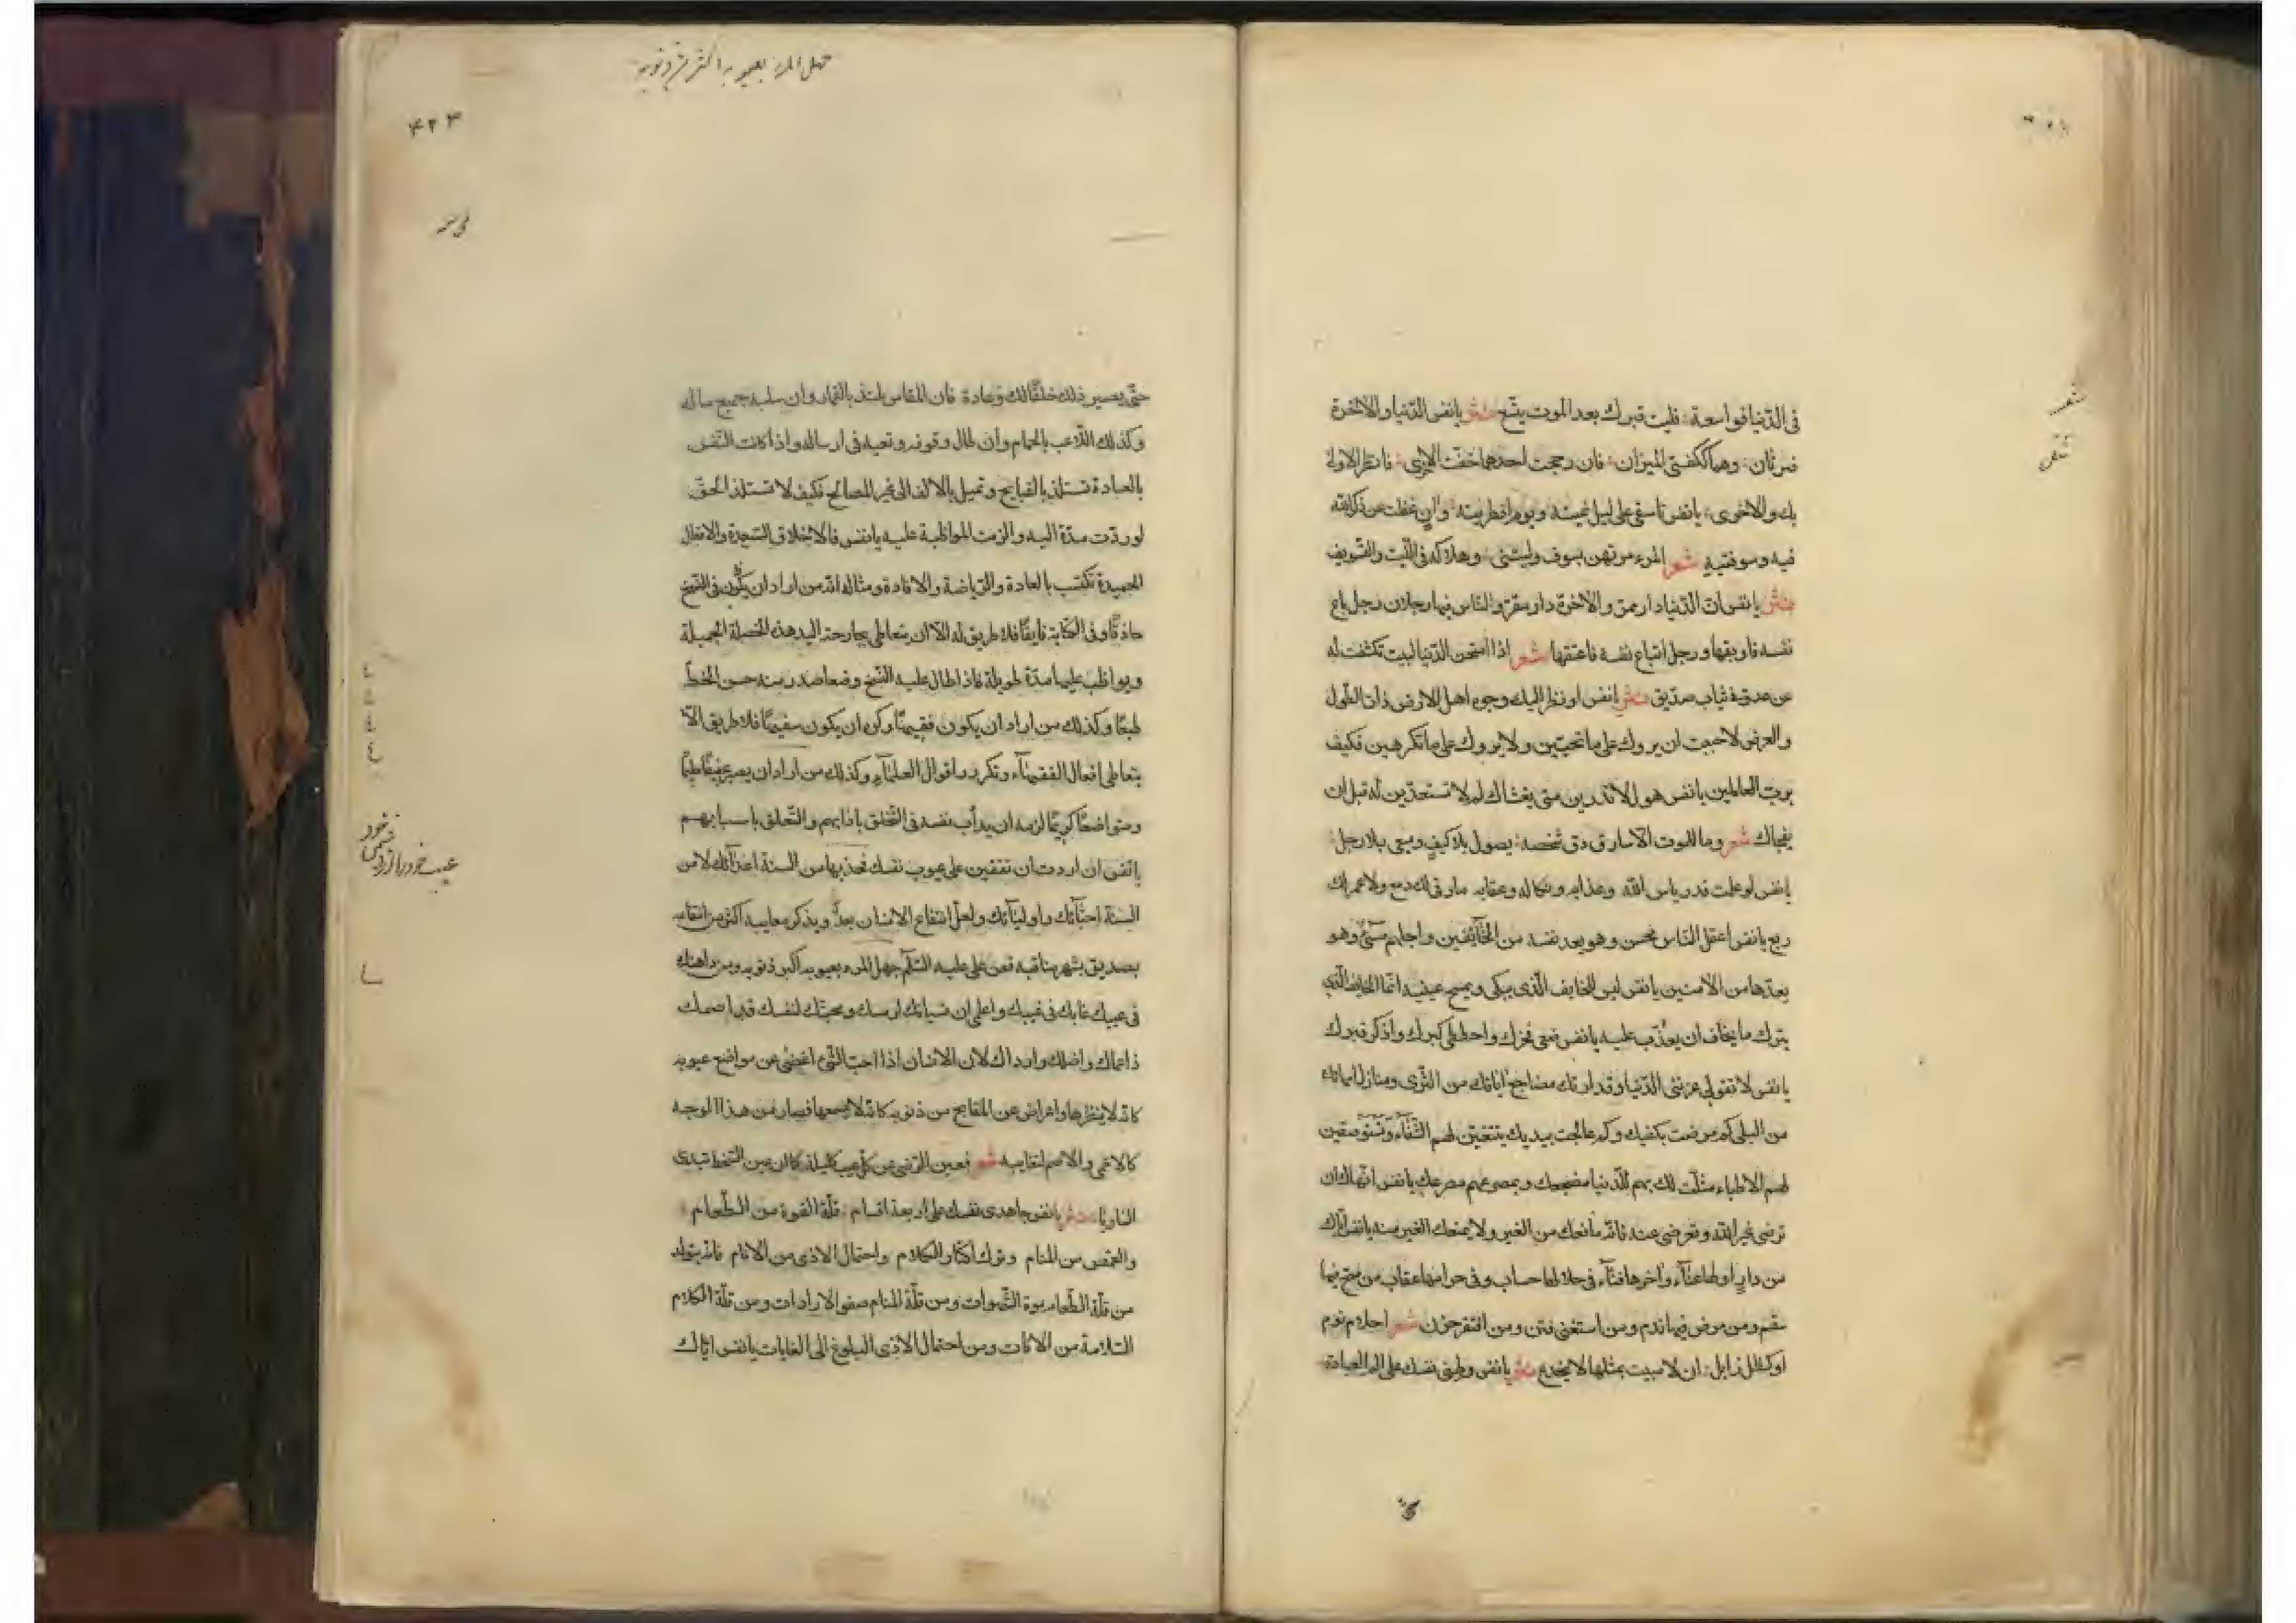 في الدّنيا فواسعة فليت قبرك بعد الموت يتّسع نثر يا نفس الدّنيا والآخرة
ضرتان وهما ككفتي الميزان فان رجحت احدهما خفّت الاخرى فانظر الاولى
بك والاخرى يا نفس تأسفي على ليل نمتيه ويوم افطرتيه وان غفلت عن ذكر الله
فيه وسوفتيه شعر المرء مرتهن بسوف وليتني وهلاكه في اللّيت والتّسويف
نثر يا نفس انّ الدّنيا دار ممرّ والآخرة دار مقرّ والنّاس فيها رجلان رجل باع
نفسه فاوبقها ورجل ابتاع نفسه فاعتقها شعر اذا امتحن الدّنيا لبيب تكشّفت له
عن عدوّ في ثياب صديق نثر يا نفس لو نظر اليك وجوه اهل الارض ذات الطّول
والعرض لاحببت ان يروك على ما تحبّين ولا يروك على ما تكرهين فكيف
بربّ العالمين يا نفس هول لا تدرين متى يغشاك لم لا تستعدّين له قبل ان
يفجاك شعر وما الموت الّا سارق دقّ شخصه يصول بلا كفّ ويسعى بلا رجل
يا نفس لو علمت قدر بأس الله وعذابه ونكاله وعقابه ما رقى لك دمع ولا عمر لك
ربع يا نفس اعقل النّاس محسن وهو يعد نفسه من الخائفين واجلهم مسيء وهو
يعدّها من الآمنين يا نفس ليس الخايف الّذي يبكي ويمسح عينيه انّما الخايف الّذي
يترك ما يخاف ان يعذّب عليه يا نفس ضعي فخرك واحططي كبرك واذكر قبرك
يا نفس لا تقولي غرتني الدّنيا وقد ارتك مضاجع آبائك من الثّرى ومنازل امهاتك
من البلى كم مرضت بكفيك وكم عالجت بيديك تبتغين لهم الشّفاء وتستوصفين
لهم الاطباء مثّلت لك بهم الدّنيا مضجعك وبمصرعهم مصرعك يا نفس ايّاك ان
ترضى غير الله وتعرضي عنه فانّه مانعك من الغير ولا يمنعك الغير منه يا نفس ايّاك
من دار اولها عناء وآخرها فناء في حلالها حساب وفي حرامها عقاب من صحّ فيها
سقم ومن مرض فيها ندم ومن استغنى فتن ومن افتقر حزن شعر احلام نوم
او كظل زايل ان لا لبيب بمثلها لا يخدع نثر يا نفس وطني نفسك على الم العبادة
حتى
۴۲۳
جهل المرء بعيوبه اكبر ذنوبه
حتّى يصير ذلك خلقًا لك وعادة فان المقامر يلتذ بالقمار وان سلبه جميع ماله
وكذلك اللّاعب بالحمام وان طال وقوفه وتعبه في ارساله واذا كانت النّفس
بالعادة تستلذ بالقبايح وتميل بالالف الى غير المصالح فكيف لا تستلذ الحقّ
لو ردّت مدّة اليه والزمت المواظبة عليه يا نفس فالاخلاق السّعيدة والافعال
الحميدة تكتب بالعادة والرّياضة والافادة ومثاله انّه من اراد ان يكون في النّسخ
حاذقًا وفي الكتابة فايقًا فلا طريق له الّا ان يتعاطى بجارحة اليد هذه الخصلة الجميلة
ويواظب عليها مدّة طويلة فاذا طال عليه النّسخ وضعا صدر منه حسن الخطّ
طبعًا وكذلك من اراد ان يكون فقيهًا وكره ان يكون سفيهًا فلا طريق الّا
يتعاطى افعال الفقهاء وتكرر اقوال العلماء وكذلك من اراد ان يصير عفيفًا حليمًا
ومتواضعًا كريمًا لزمه ان يدأب نفسه في التّخلق بآدابهم والتّعلق باسبابهم
يا نفس ان اردت ان تقفين على عيوب نفسك فخذيها من السنة اعدائك لا من
السنة احبّائك واوليائك ولعلّ انتفاع الانسان بعدوّ يذكر معايبه اكثر من انتفاعه
بصديق يشهر مناقبه فعن علي عليه السّلام جهل المرء بعيوبه اكبر ذنوبه ومن داهنك
في عيبك عابك في غيبك واعلمي ان شيمتك لنفسك ومحبتك لنفسك قد اصمك
ذاعماك واضلك وارداك لان الانسان اذا احبّ الشّيء اغضى عن مواضع عيوبه
كانّه لا ينظرها واعراض عن المقابح من ذنوبه كانّه لا يسمعها فصار من هذا الوجه
كالاعمى والاصم لمعايبه شعر فعين الرّضى عن كلّ عيب كليلة كما ان عين السّخط تبدى
المساويا نثر يا نفس جاهدي نفسك على اربعة اقسام قلّة القوة من الطّعام
والغمض من المنام وترك اكثار الكلام واحتمال الاذى من الانام فانّه يتولد
من قلّة الطّعام موة الشّهوات ومن قلّة المنام صفو الارادات ومن قلّة الكلام
السّلامة من الافات ومن احتمال الاذى البلوغ الى الغايات يا نفس ايّاك
عيب خود را از دشمن خود